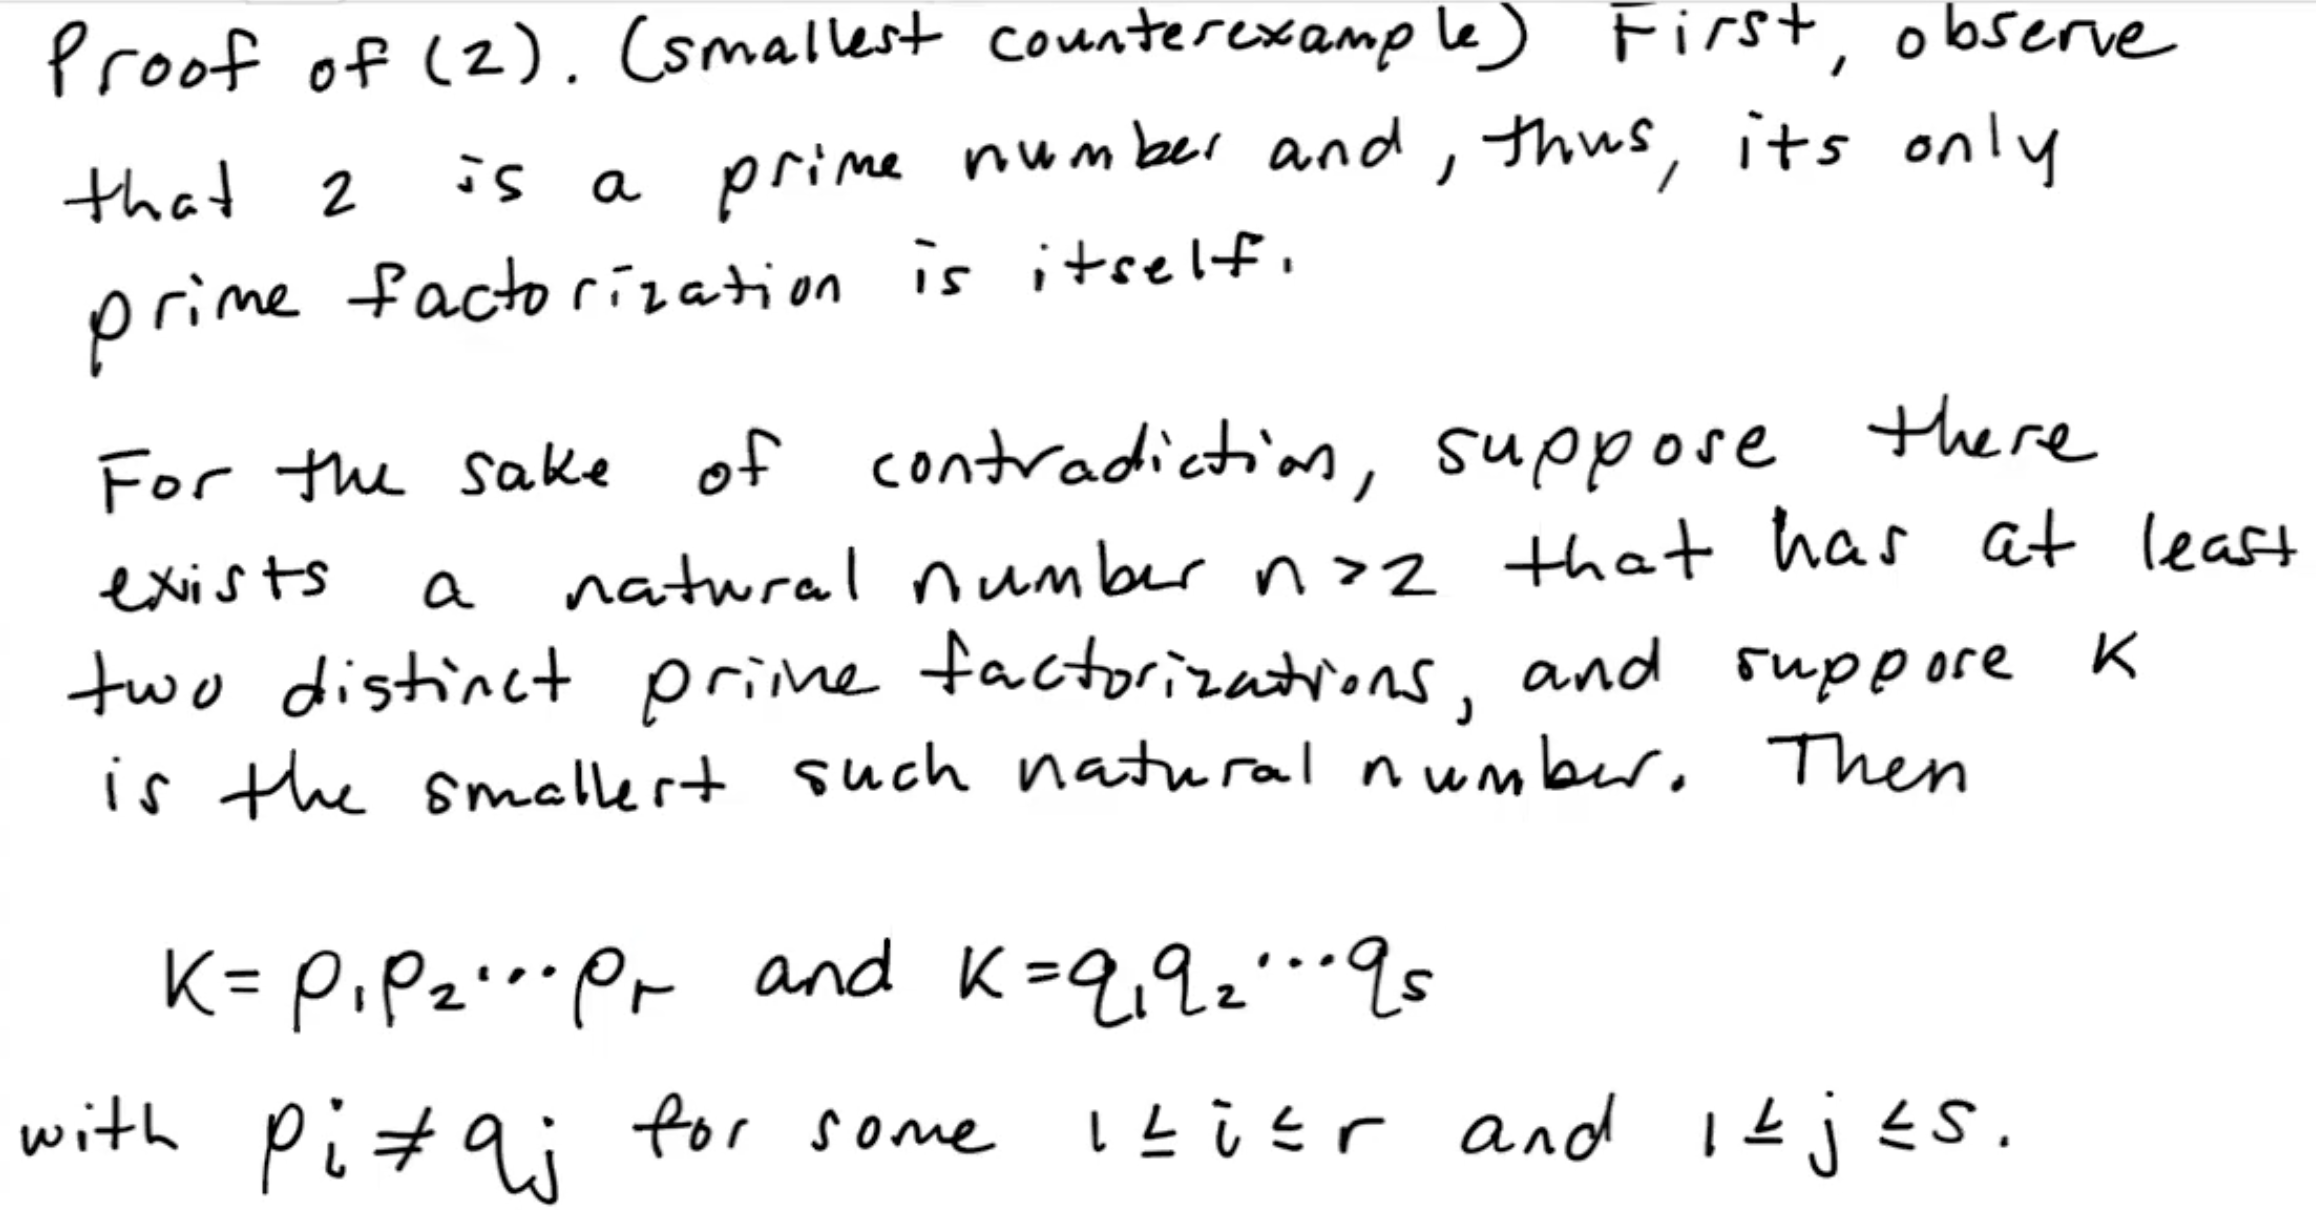 Proof of (2). (smallest counterexample) First, observe
that 2 is a prime number and, thus, its only
prime factorization is itself.
For the sake of contradiction, suppose there
exists a natural number n>2 that has at least
two distinct prime factorizations, and suppose K
is the smallest such natural number. Then
K=p₁p₂...pᵣ and K=q₁q₂...qₛ
with pᵢ≠qⱼ for some 1≤i≤r and 1≤j≤s.